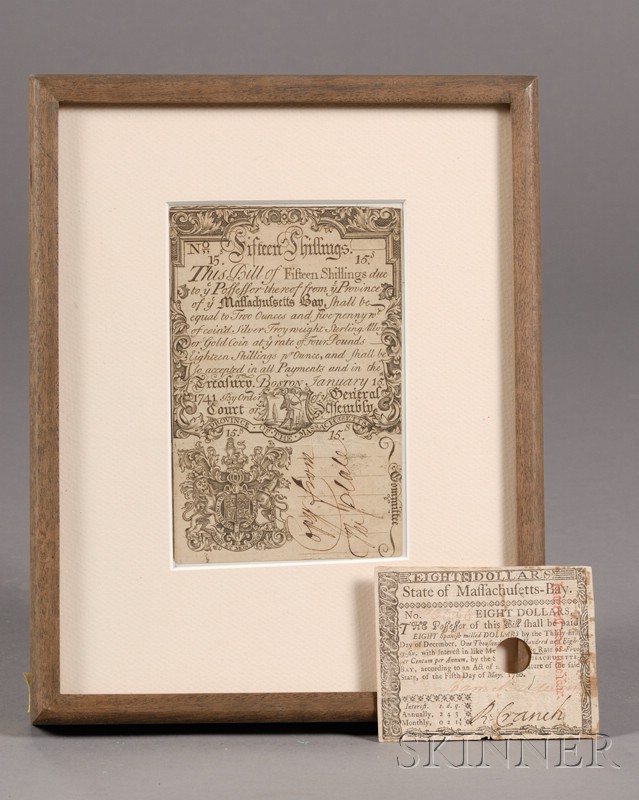 No Fifteen Shillings.
15. 15.s
This Bill of Fifteen Shillings due
to ỹ Possessor thereof from ỹ Province
of ỹ Massachusetts Bay, shall be
equal to Two Ounces and five penny wt
of coin'd Silver Troy weight Sterling Alloy
or Gold Coin at ỹ rate of Four Pounds
Eighteen Shillings pr Ounce, and shall be
accepted in all Payments and in the
Treasury. Boston January 15
1741 By Order of ỹ General
Court or Assembly
PROVINCE OF THE MASSACHUSETTS
15. 15. S
Committee
EIGHT DOLLARS
State of Massachusetts-Bay.
No. EIGHT DOLLARS.
THE Possessor of this Bill shall be paid
EIGHT Spanish milled DOLLARS by the Thirty-first
Day of December, One Thousand Hundred and Eigh-
ty-six, with Interest in like Rate of Five
per Centum per Annum, by the MASSACHUSETTS-
BAY, according to an Act of the said
State, of the Fifth Day of May, 1780.
Interest. s. d. q.
Annually, 2 4 3
Monthly, 0 2 1
R. Cranch
SKINNER